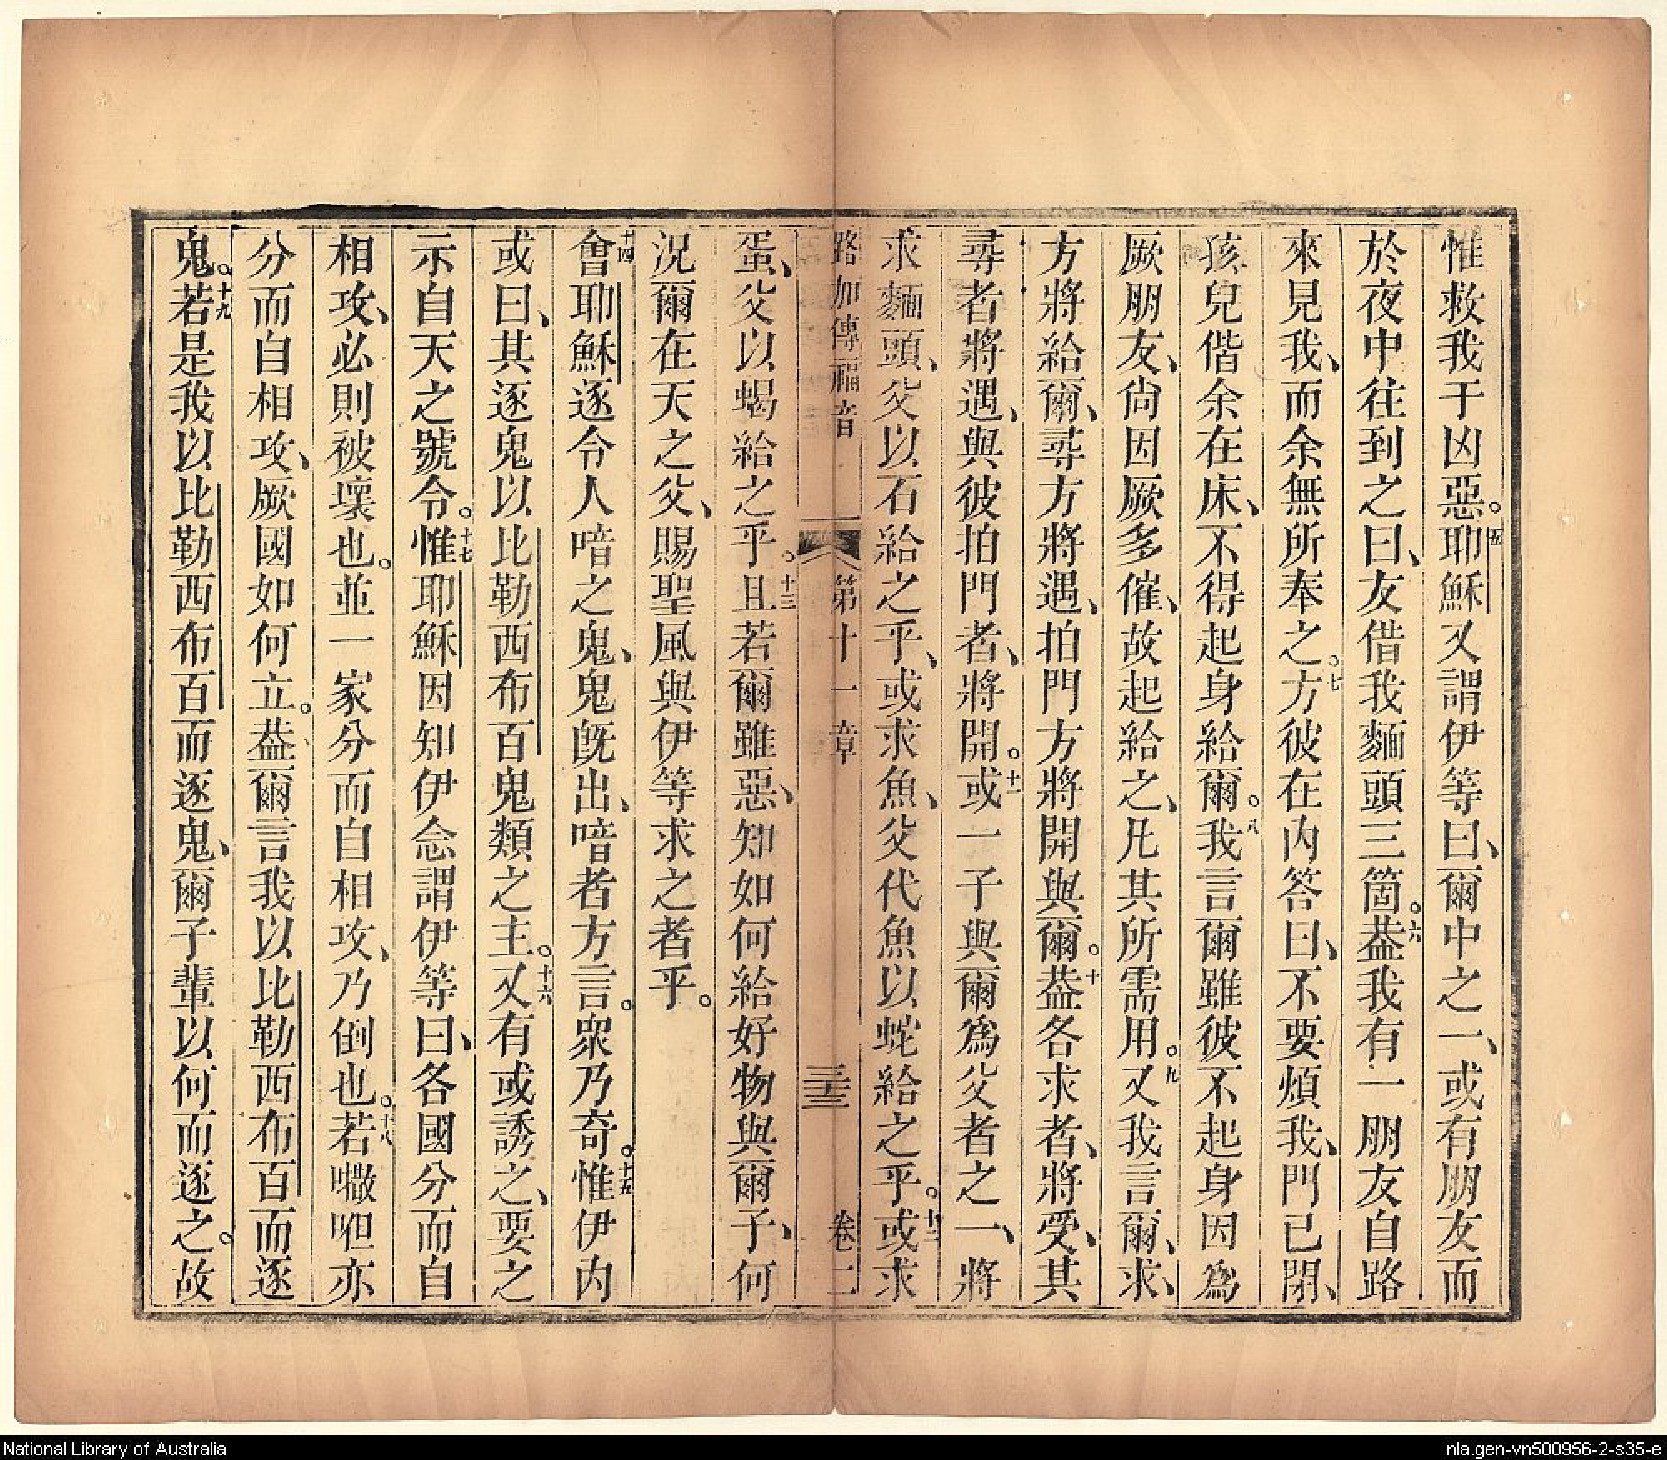 惟救我于凶惡。五耶穌又謂伊等曰、爾中之一、或有朋友而
於夜中往到之曰、友借我麵頭三箇。六蓋我有一朋友自路
來見我、而余無所奉之。七方彼在內答曰、不要煩我、門已閉、
孩兒偕余在床、不得起身給爾。八我言爾雖彼不起身因為
厥朋友、尚因厥多催、故起給之、凡其所需用。九又我言爾、求、
方將給爾、尋方將遇、拍門方將開與爾。十蓋各求者、將受、其
尋者將遇、與彼拍門者、將開。十一或一子與爾為父者之一、將
求麵頭、父以石給之乎、或求魚、父代魚以蛇給之乎。十二或求
路加傳福音 第十一章 三十三 卷二
蛋、父以蝎給之乎。十三且若爾雖惡、知如何給好物與爾子、何
況爾在天之父、賜聖風與伊等求之者乎。
十四會耶穌逐令人喑之鬼、鬼既出、喑者方言。眾乃奇。十五惟伊內
或曰、其逐鬼以比勒西布百鬼類之主。十六又有或誘之、要之
示自天之號令。十七惟耶穌因知伊念謂伊等曰、各國分而自
相攻、必則被壞也。並一家分而自相攻、乃倒也。十八若𠹌呾亦
分而自相攻、厥國如何立。蓋爾言我以比勒西布百而逐
鬼。十九若是我以比勒西布百而逐鬼、爾子輩以何而逐之。故
National Library of Australia
nla.gen-vn500956-2-s35-e